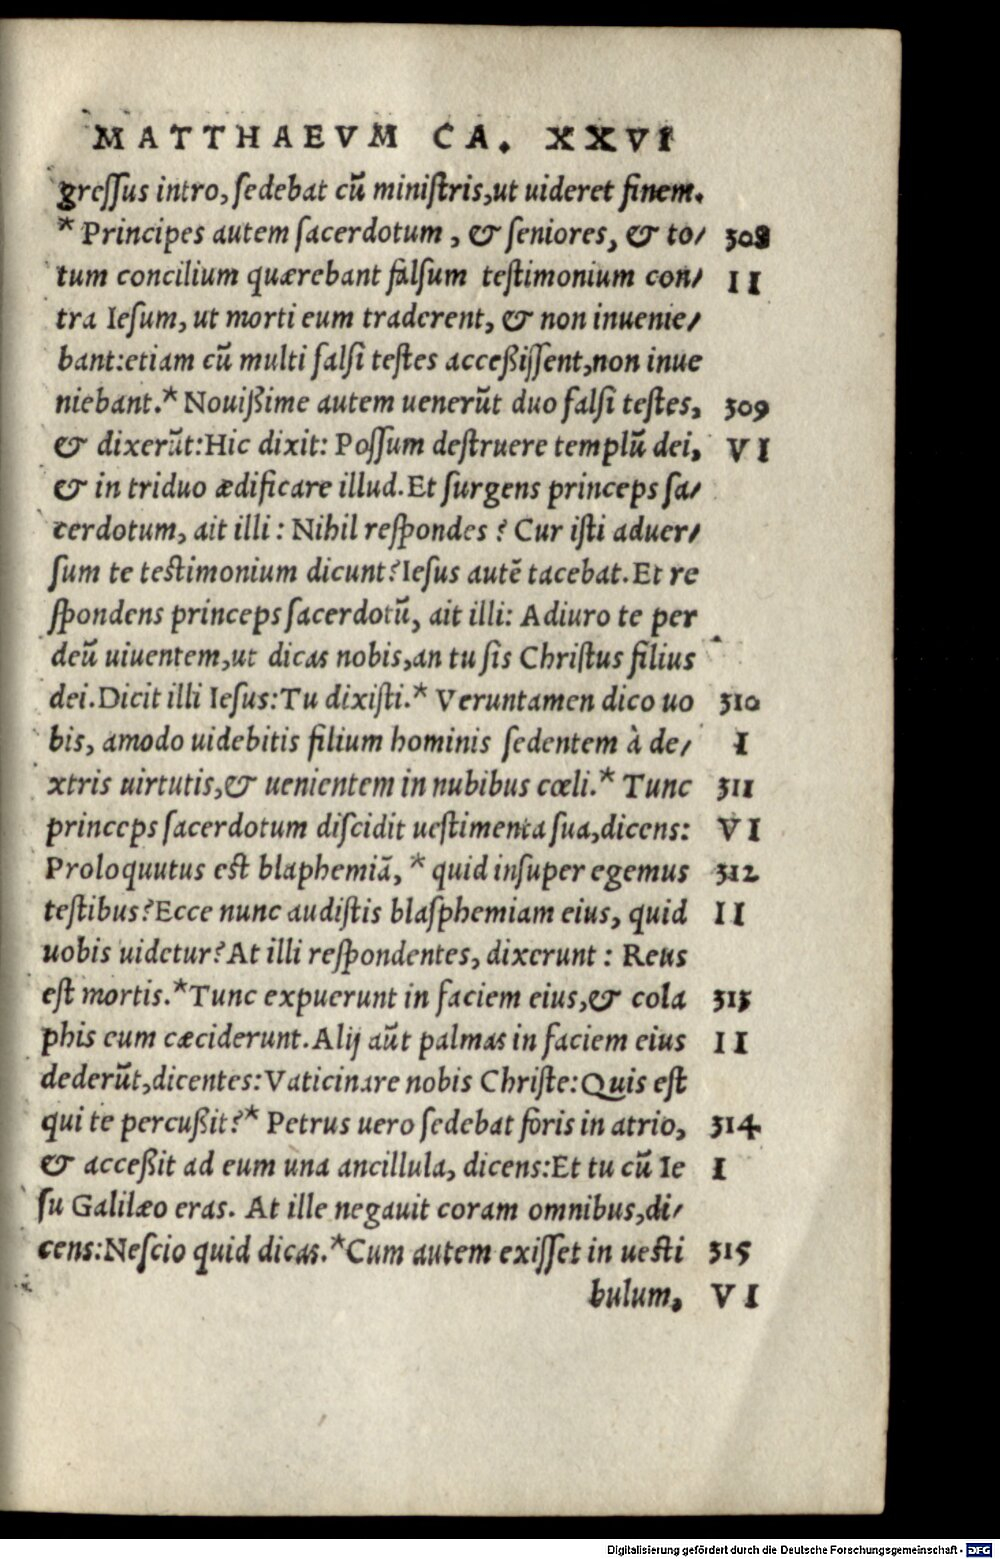 MATTHAEVM CA. XXVI
greſſus intro, ſedebat cũ miniſtris,ut uideret finem.
* Principes autem ſacerdotum , & ſeniores, & to/ 308
tum concilium quærebant falſum teſtimonium con/ II
tra Ieſum, ut morti eum traderent, & non inuenie/
bant:etiam cũ multi falſi teſtes acceßiſſent,non inue
niebant.* Nouißime autem uenerũt duo falſi teſtes, 309
& dixerũt:Hic dixit: Poſſum deſtruere templũ dei, VI
& in triduo ædificare illud.Et ſurgens princeps ſa/
cerdotum, ait illi : Nihil reſpondes ? Cur iſti aduer/
ſum te teſtimonium dicunt?Ieſus autẽ tacebat.Et re
ſpondens princeps ſacerdotũ, ait illi: Adiuro te per
deũ uiuentem,ut dicas nobis,an tu ſis Chriſtus filius
dei.Dicit illi Ieſus:Tu dixiſti.* Veruntamen dico uo 310
bis, amodo uidebitis filium hominis ſedentem à de/ I
xtris uirtutis,& uenientem in nubibus cœli.* Tunc 311
princeps ſacerdotum diſcidit ueſtimenta ſua,dicens: VI
Proloquutus eſt blaphemiã, * quid inſuper egemus 312
teſtibus?Ecce nunc audiſtis blaſphemiam eius, quid II
uobis uidetur?At illi reſpondentes, dixerunt : Reus
eſt mortis.*Tunc expuerunt in faciem eius,& cola 313
phis eum cæciderunt.Alij aũt palmas in faciem eius II
dederũt,dicentes:Vaticinare nobis Chriſte:Quis eſt
qui te percußit?* Petrus uero ſedebat foris in atrio, 314
& acceßit ad eum una ancillula, dicens:Et tu cũ Ie I
ſu Galilæo eras. At ille negauit coram omnibus,di/
cens:Neſcio quid dicas.*Cum autem exiſſet in ueſti 315
bulum, VI
Digitalisierung gefördert durch die Deutsche Forschungsgemeinschaft - DFG